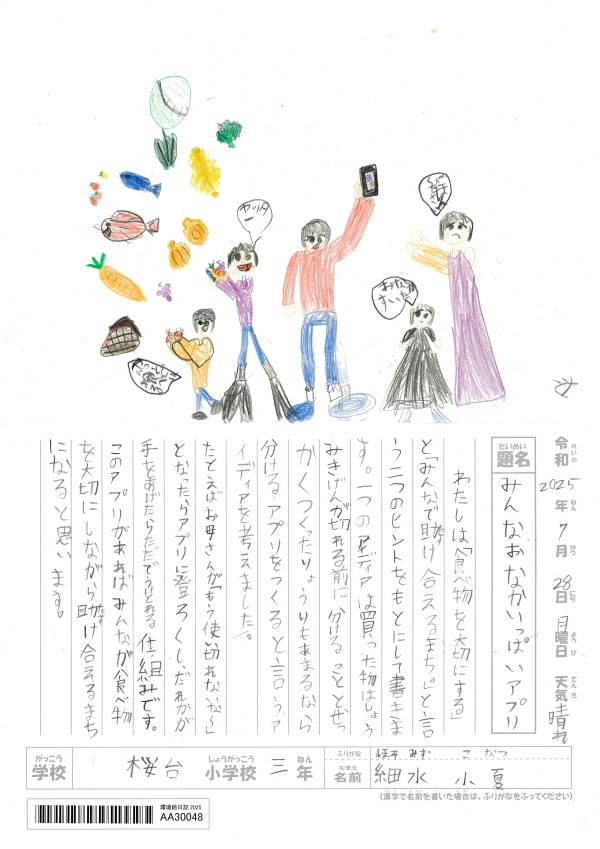 ヤッター
おなかすいた
令和2025年7月28日月曜日 天気晴れ
れいわ ねん がつ にち ようび てんき
だいめい
題名 みんなおなかいっぱいアプリ
わたしは「食べ物を大切にする」
と「みんなで助け合えるまち。」と言
う二つのヒントをもとにして書きま
す。一つのアイディアは買った物はしょう
みきげんが切れる前に分けることとぜっ
かくつくったりょうりもあまるなら
分けるアプリをつくると言うア
イディアを考えました。
たとえばお母さんが「もう使い切れないな〜」
となったらアプリに登ろくし、だれかが
手をあげたらただでうけとれる仕組みです。
このアプリがあればみんなが食べ物
を大切にしながら助け合えるまち
になると思います。
がっこう しょうがっこう ねん
学校 桜台小学校 三年
ふりがな ほそ みず こ なつ
なまえ
名前 細水 小夏
(漢字で名前を書いた場合は、ふりがなをふってください)
環境絵日記 2025
AA30048